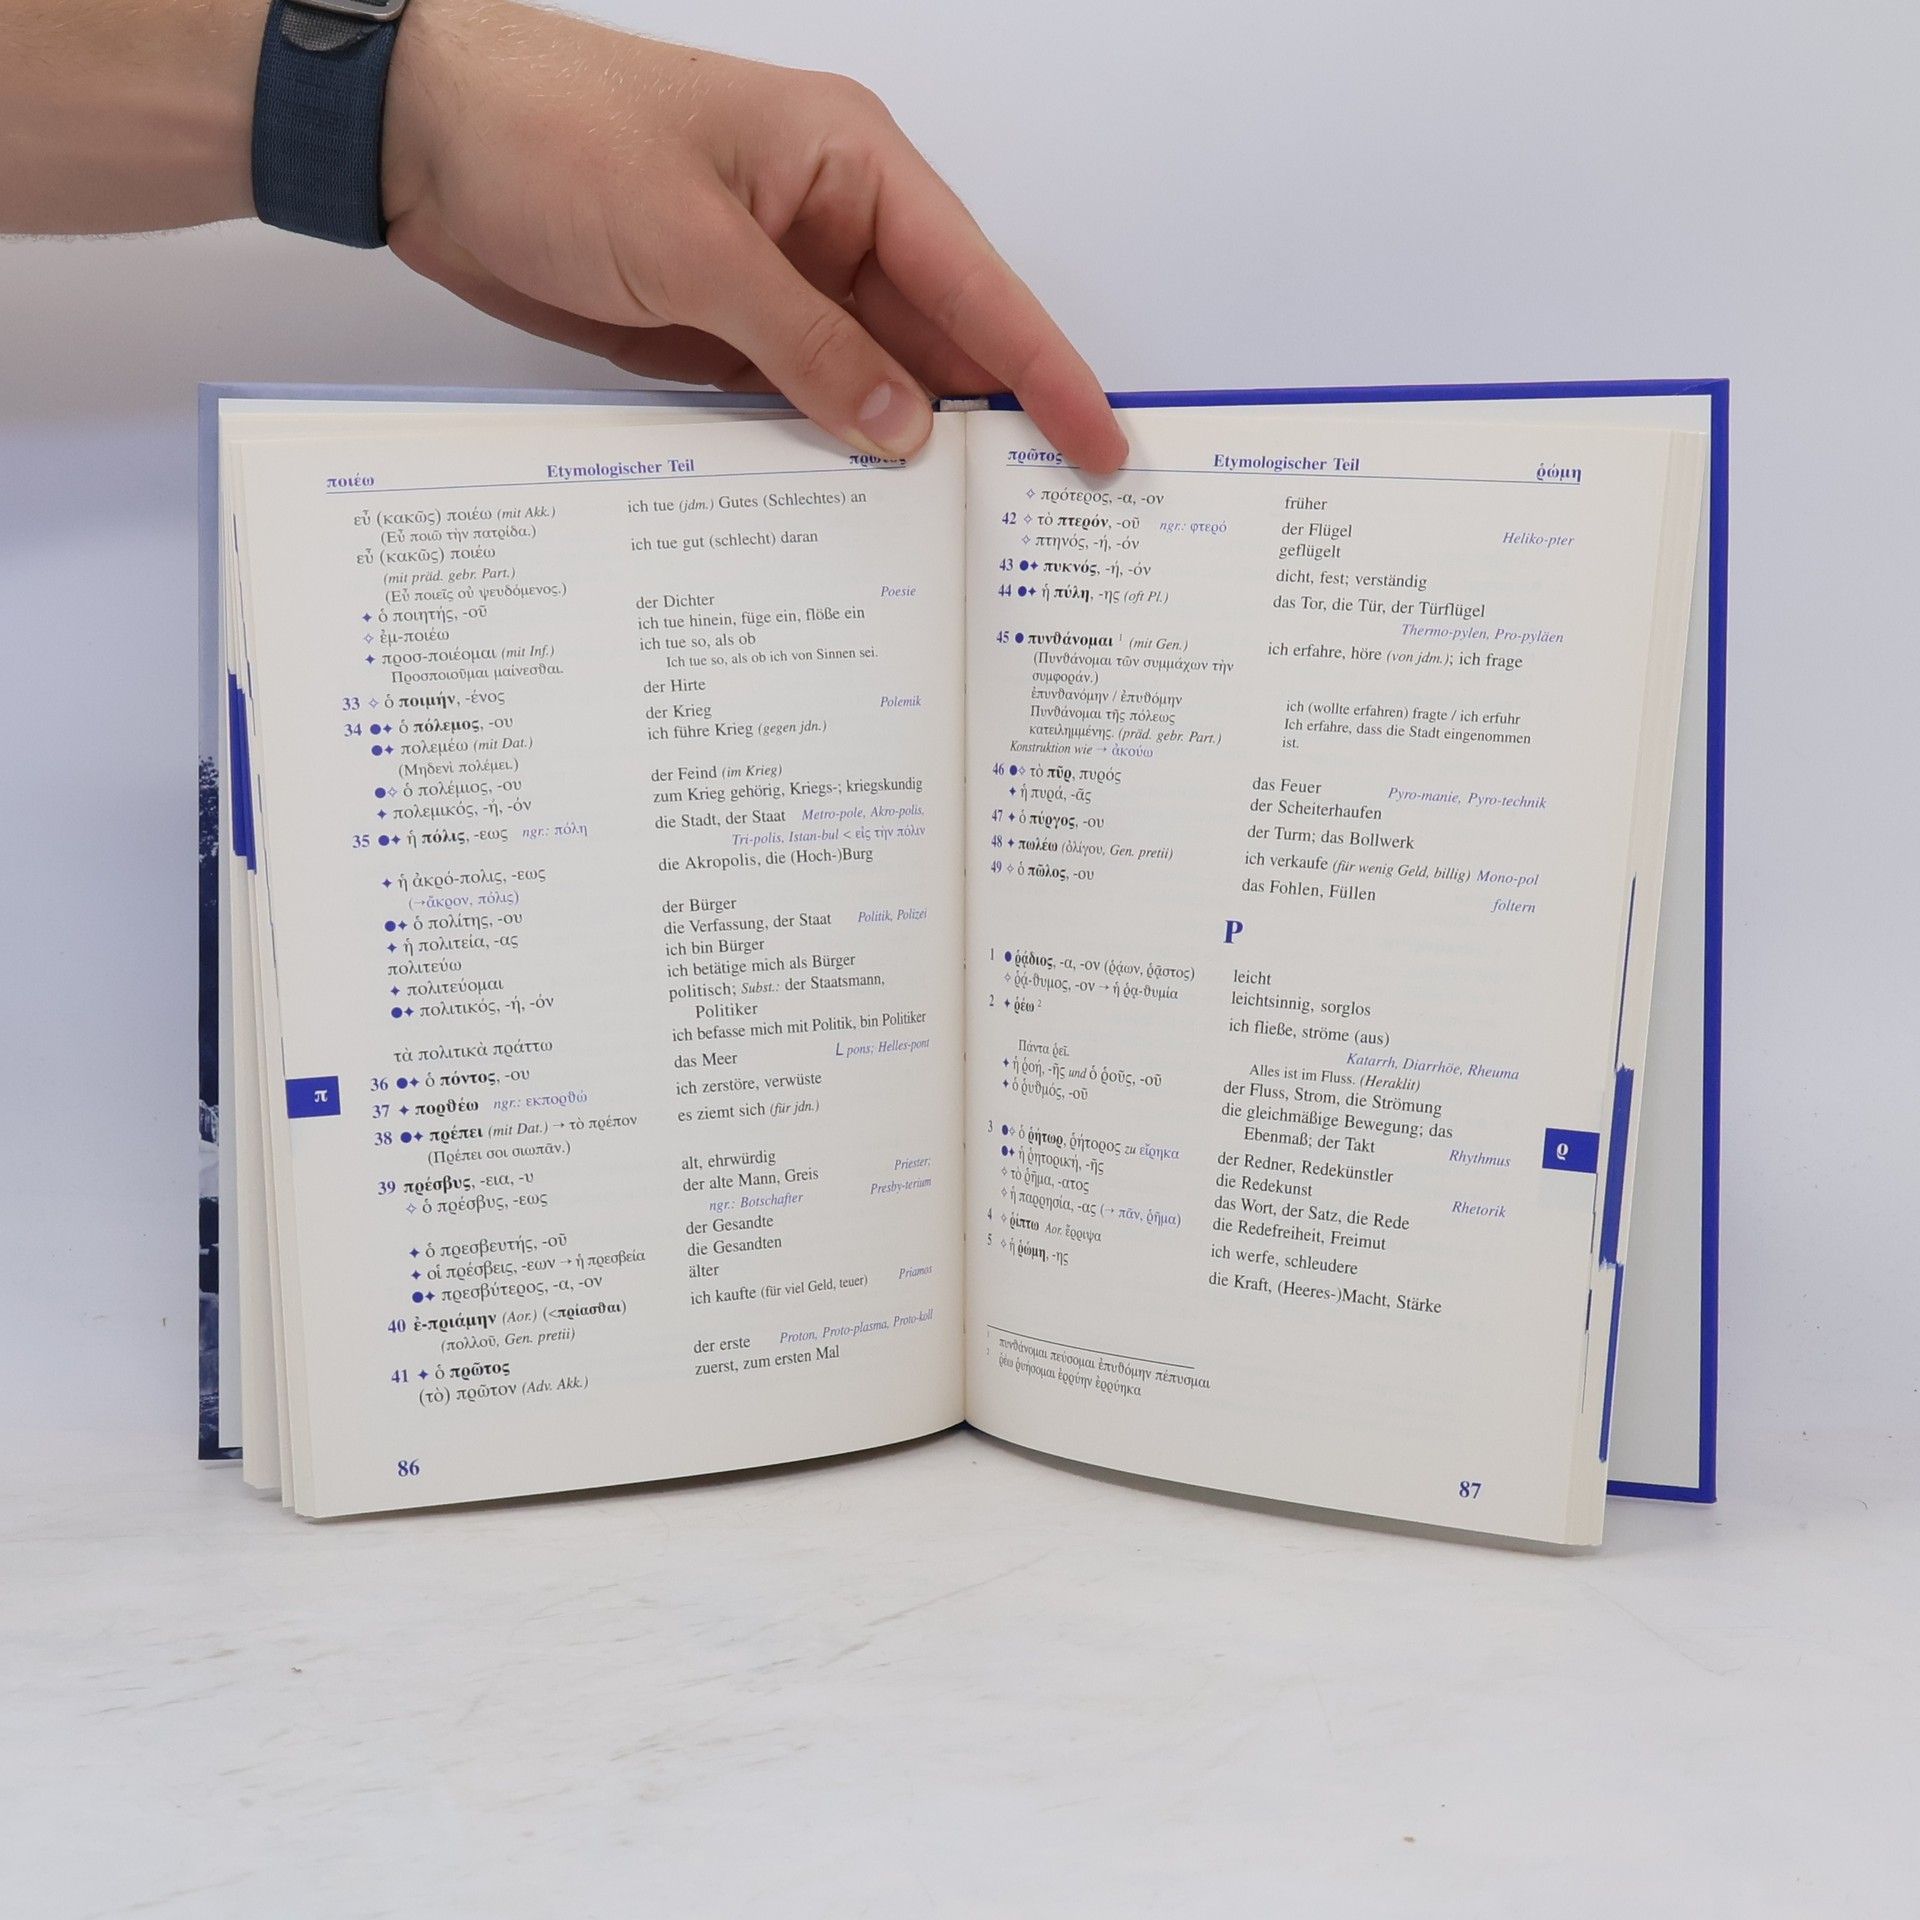 ποιέω Etymologischer Teil πρῶτος
εὖ (κακῶς) ποιέω (mit Akk.) ich tue (jdm.) Gutes (Schlechtes) an
(Εὖ ποιῶ τὴν πατρίδα.)
εὖ (κακῶς) ποιέω ich tue gut (schlecht) daran
(mit präd. gebr. Part.)
(Εὖ ποιεῖς οὐ ψευδόμενος.)
✦ ὁ ποιητής, -οῦ der Dichter Poesie
✧ ἐμ-ποιέω ich tue hinein, füge ein, flöße ein
✦ προσ-ποιέομαι (mit Inf.) ich tue so, als ob
Προσποιοῦμαι μαίνεσθαι. Ich tue so, als ob ich von Sinnen sei.
33 ✧ ὁ ποιμήν, -ένος der Hirte
34 ●✦ ὁ πόλεμος, -ου der Krieg Polemik
●✦ πολεμέω (mit Dat.) ich führe Krieg (gegen jdn.)
(Μηδενὶ πολέμει.)
●✧ ὁ πολέμιος, -ου der Feind (im Krieg)
✦ πολεμικός, -ή, -όν zum Krieg gehörig, Kriegs-; kriegskundig
35 ●✦ ἡ πόλις, -εως ngr.: πόλη die Stadt, der Staat Metro-pole, Akro-polis,
Tri-polis, Istan-bul < εἰς τὴν πόλιν
✦ ἡ ἀκρό-πολις, -εως die Akropolis, die (Hoch-)Burg
(→ἄκρον, πόλις)
●✦ ὁ πολίτης, -ου der Bürger
✦ ἡ πολιτεία, -ας die Verfassung, der Staat Politik, Polizei
πολιτεύω ich bin Bürger
✦ πολιτεύομαι ich betätige mich als Bürger
●✦ πολιτικός, -ή, -όν politisch; Subst.: der Staatsmann,
Politiker
τὰ πολιτικὰ πράττω ich befasse mich mit Politik, bin Politiker
36 ●✦ ὁ πόντος, -ου das Meer L pons; Helles-pont
37 ✦ πορθέω ngr.: εκπορθώ ich zerstöre, verwüste
38 ●✦ πρέπει (mit Dat.) → τὸ πρέπον es ziemt sich (für jdn.)
(Πρέπει σοι σιωπᾶν.)
39 πρέσβυς, -εια, -υ alt, ehrwürdig
✧ ὁ πρέσβυς, -εως der alte Mann, Greis Priester;
ngr.: Botschafter Presby-terium
✦ ὁ πρεσβευτής, -οῦ der Gesandte
✦ οἱ πρέσβεις, -εων → ἡ πρεσβεία die Gesandten
●✦ πρεσβύτερος, -α, -ον älter
40 ἐ-πριάμην (Aor.) (<πρίασθαι) ich kaufte (für viel Geld, teuer) Priamos
(πολλοῦ, Gen. pretii)
41 ✦ ὁ πρῶτος der erste Proton, Proto-plasma, Proto-koll
(τὸ) πρῶτον (Adv. Akk.) zuerst, zum ersten Mal
π
86
πρῶτος Etymologischer Teil ῥώμη
✧ πρότερος, -α, -ον früher
42 ✧ τὸ πτερόν, -οῦ ngr.: φτερό der Flügel Heliko-pter
✧ πτηνός, -ή, -όν geflügelt
43 ●✦ πυκνός, -ή, -όν dicht, fest; verständig
44 ●✦ ἡ πύλη, -ης (oft Pl.) das Tor, die Tür, der Türflügel
Thermo-pylen, Pro-pyläen
45 ● πυνθάνομαι ¹ (mit Gen.) ich erfahre, höre (von jdm.); ich frage
(Πυνθάνομαι τῶν συμμάχων τὴν
συμφοράν.)
ἐπυνθανόμην / ἐπυθόμην ich (wollte erfahren) fragte / ich erfuhr
Πυνθάνομαι τῆς πόλεως Ich erfahre, dass die Stadt eingenommen
κατειλημμένης. (präd. gebr. Part.) ist.
Konstruktion wie → ἀκούω
46 ●✧ τὸ πῦρ, πυρός das Feuer Pyro-manie, Pyro-technik
✦ ἡ πυρά, -ᾶς der Scheiterhaufen
47 ✦ ὁ πύργος, -ου der Turm; das Bollwerk
48 ✦ πωλέω (ὀλίγου, Gen. pretii) ich verkaufe (für wenig Geld, billig) Mono-pol
49 ✧ ὁ πῶλος, -ου das Fohlen, Füllen foltern
Ρ
1 ● ῥᾴδιος, -α, -ον (ῥᾴων, ῥᾷστος) leicht
✧ ῥᾴ-θυμος, -ον → ἡ ῥᾳ-θυμία leichtsinnig, sorglos
2 ✦ ῥέω ² ich fließe, ströme (aus)
Katarrh, Diarrhöe, Rheuma
Πάντα ῥεῖ. Alles ist im Fluss. (Heraklit)
✦ ἡ ῥοή, -ῆς und ὁ ῥοῦς, -οῦ der Fluss, Strom, die Strömung
✦ ὁ ῥυθμός, -οῦ die gleichmäßige Bewegung; das
Ebenmaß; der Takt Rhythmus
3 ●✧ ὁ ῥήτωρ, ῥήτορος zu εἴρηκα der Redner, Redekünstler
●✦ ἡ ῥητορική, -ῆς die Redekunst Rhetorik
✧ τὸ ῥῆμα, -ατος das Wort, der Satz, die Rede
✧ ἡ παρρησία, -ας (→ πᾶν, ῥῆμα) die Redefreiheit, Freimut
4 ✧ ῥίπτω Aor. ἔρριψα ich werfe, schleudere
5 ✧ ἡ ῥώμη, -ης die Kraft, (Heeres-)Macht, Stärke
ρ
¹ πυνθάνομαι πεύσομαι ἐπυθόμην πέπυσμαι
² ῥέω ῥυήσομαι ἐρρύην ἐρρύηκα
87